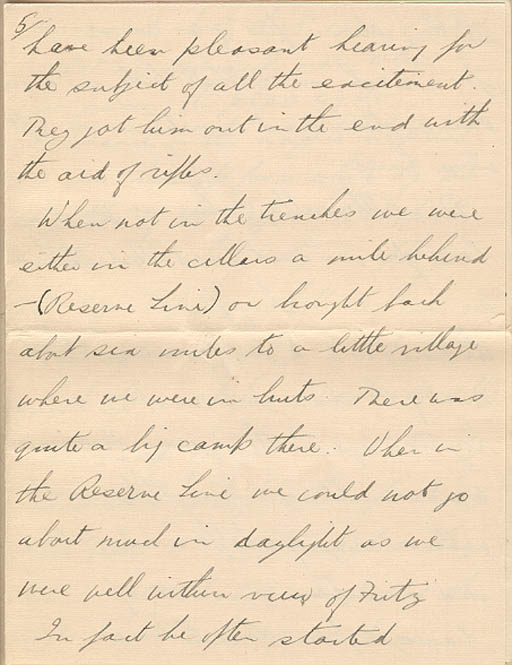 5/
have been pleasant hearing for
the subject of all the excitement.
They got him out in the end with
the aid of rifles.
When not in the trenches we were
either in the cellars a mile behind
-(Reserve Line) or brought back
about six miles to a little village
where we were in huts. There was
quite a big camp there. When in
the Reserve Line we could not go
about much in daylight as we
were well within view of Fritz
In fact he often started